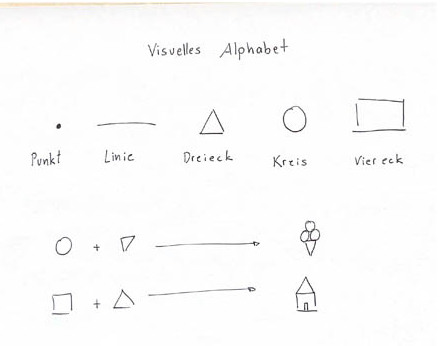 Visuelles Alphabet
Punkt Linie Dreieck Kreis Viereck
+
+